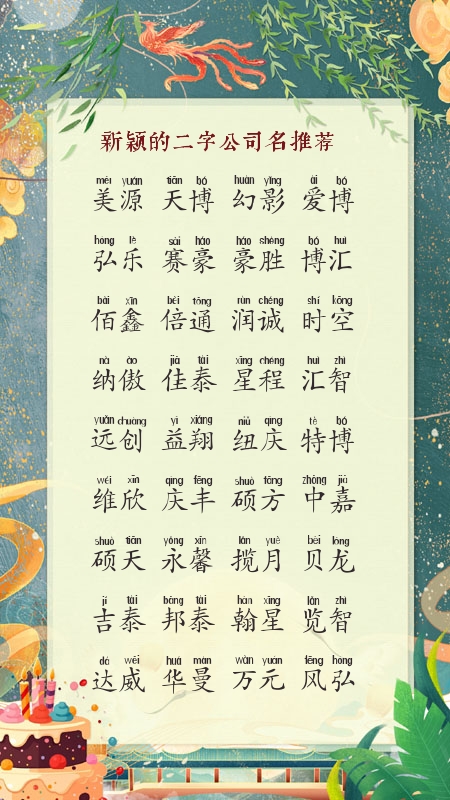 新颖的二字公司名推荐
měi yuán tiān bó huàn yǐng ài bó
美源 天博 幻影 爱博
hóng lè sài háo háo shèng bó huì
弘乐 赛豪 豪胜 博汇
bǎi xīn bèi tōng rùn chéng shí kōng
佰鑫 倍通 润诚 时空
nà ào jiā tài xīng chéng huì zhì
纳傲 佳泰 星程 汇智
yuǎn chuàng yì xiáng niǔ qìng tè bó
远创 益翔 纽庆 特博
wéi xīn qìng fēng shuò fāng zhōng jiā
维欣 庆丰 硕方 中嘉
shuò tiān yǒng xīn lǎn yuè bèi lóng
硕天 永馨 揽月 贝龙
jí tài bāng tài hàn xīng lǎn zhì
吉泰 邦泰 翰星 览智
dá wēi huá màn wàn yuán fēng hóng
达威 华曼 万元 风弘